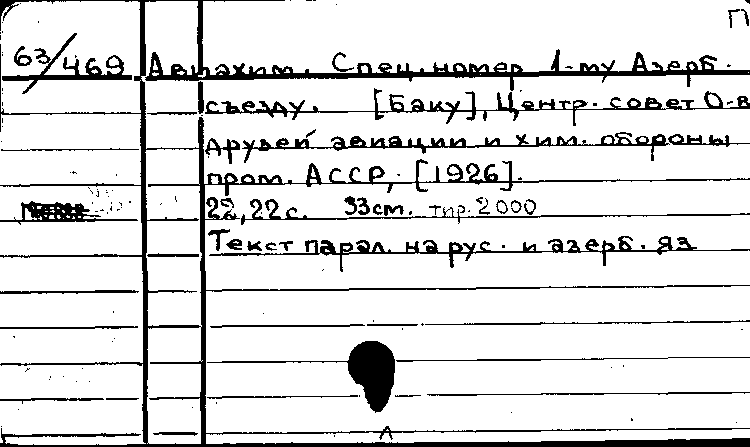 П
63/469 Авиахим. Спец. номер 1-му Азерб.
съезду. [Баку], Центр. совет О-в
друзей авиации и хим. обороны
пром. АССР, [1926].
22, 22 с. 33 cm. тир. 2000
Текст парал. на рус. и азерб. яз